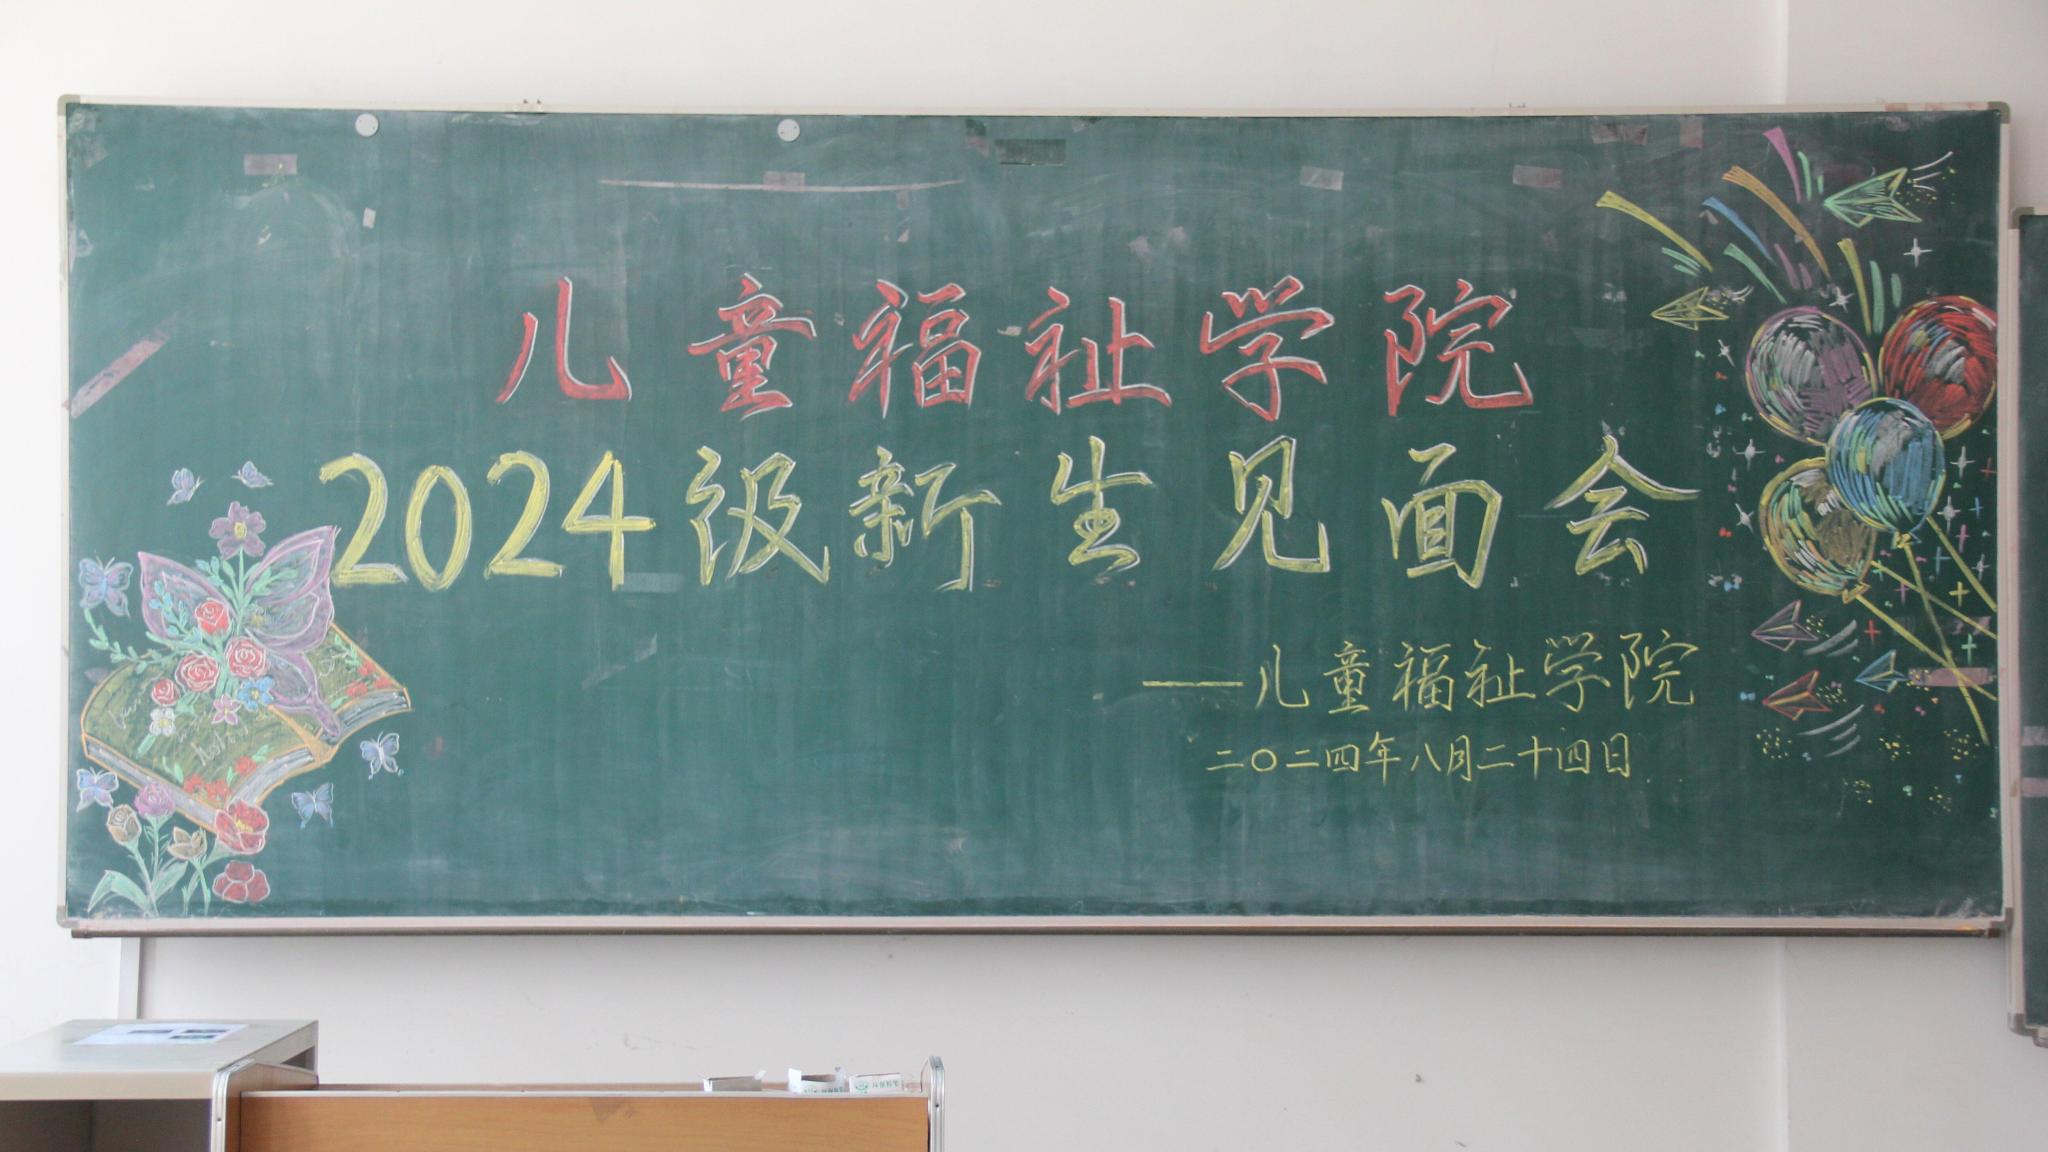 儿童福祉学院
2024级新生见面会
——儿童福祉学院
二〇二四年八月二十四日